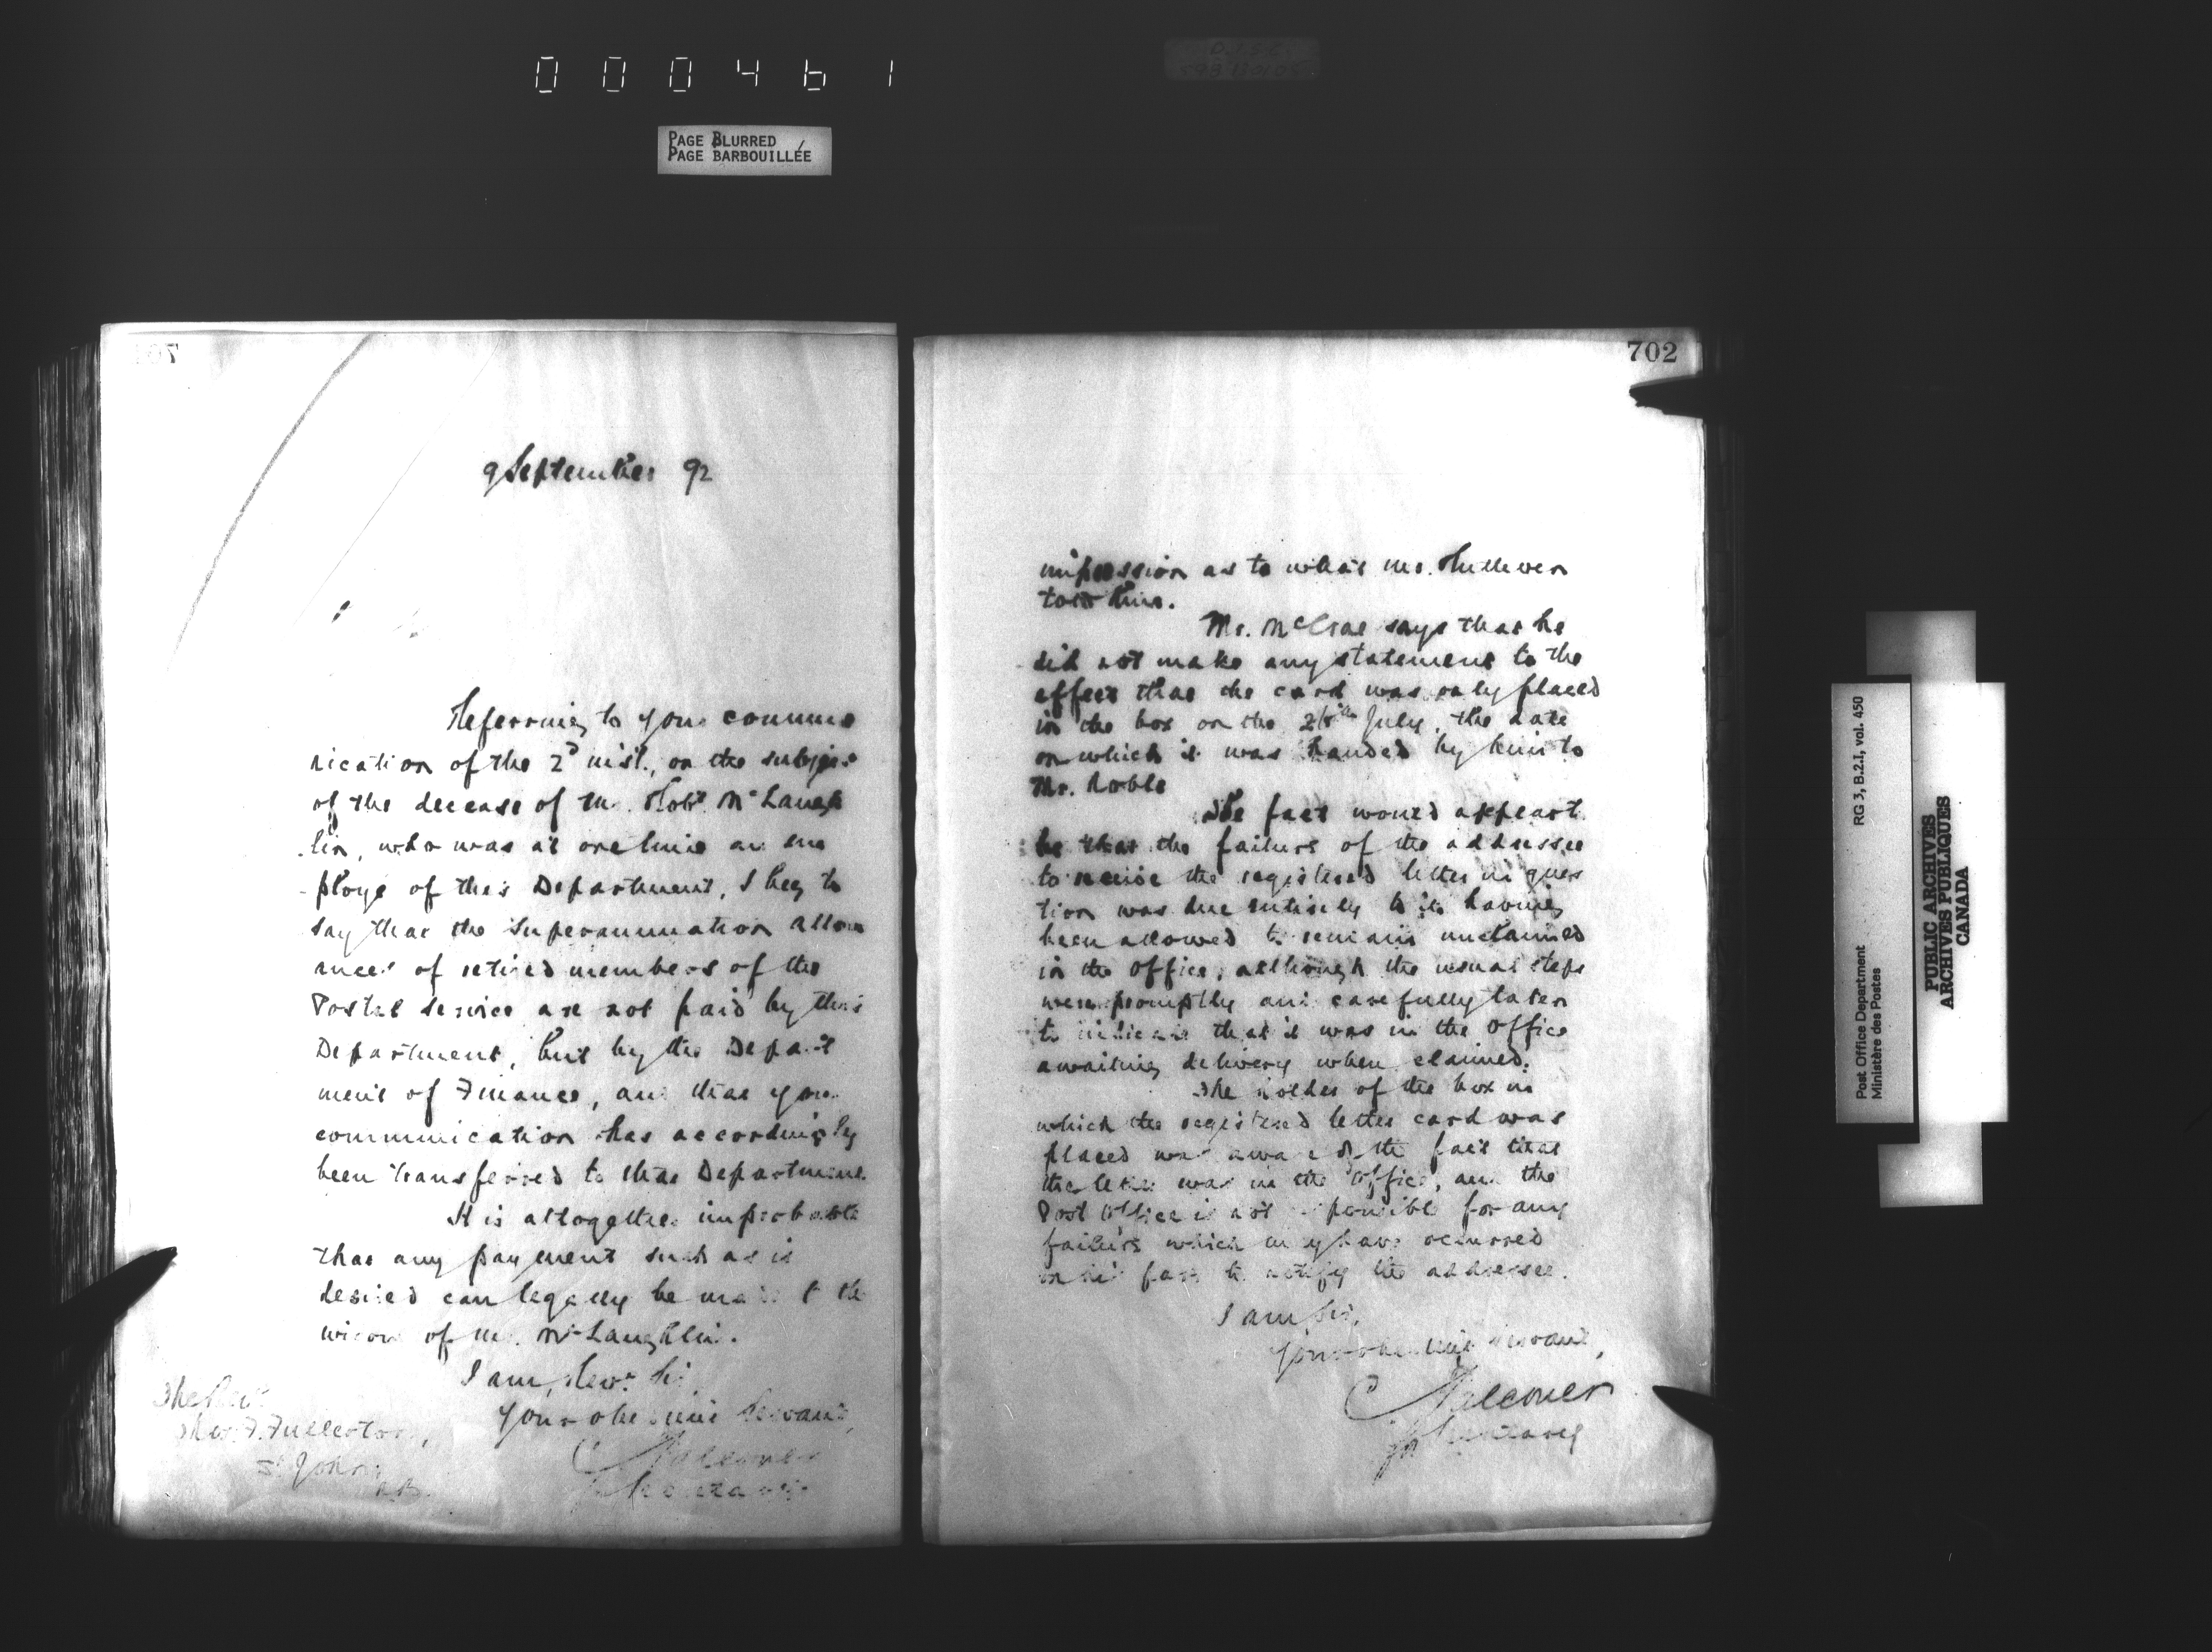 000461
PAGE BLURRED
PAGE BARBOUILLÉE
9 September 92
Referring to your commu
nication of the 2d inst., on the subject
of the decease of Mr. Robt McLaugh
lin, who was at one time an em
ploye of this Department, I beg to
say that the Superannuation allow
ances of retired members of the
Postal Service are not paid by this
Department, but by the Depart
ment of Finance, and that your
communication has accordingly
been transferred to that Department.
It is altogether improbable
that any payment such as is
desired can legally be made to the
widow of Mr. McLaughlin.
I am, Revd Sir,
Your obedient Servant,
Secretary
The Rev.
Fullerton,
St. John,
N.B.
702
impression as to what Mr.
told him.
Mr. McCrae says that he
did not make any statement to the
effect that the card was only placed
in the box on the July, the date
on which it was handed by him to
Mr. Noble
The fact would appear to
be that the failure of the addressee
to receive the registered letter in ques
tion was due entirely to its having
been allowed to remain unclaimed
in the Office, although the usual steps
were promptly and carefully taken
to indicate that it was in the Office
awaiting delivery when claimed.
The holder of the box in
which the registered letter card was
placed was aware of the fact that
the letter was in the Office, and the
Post Office is not responsible for any
failure which may have occurred
on his part to notify the addressee.
I am, Sir,
Your obedient Servant,
Secretary
Post Office Department
Ministère des Postes
RG 3, B.2.I, vol. 450
PUBLIC ARCHIVES
ARCHIVES PUBLIQUES
CANADA